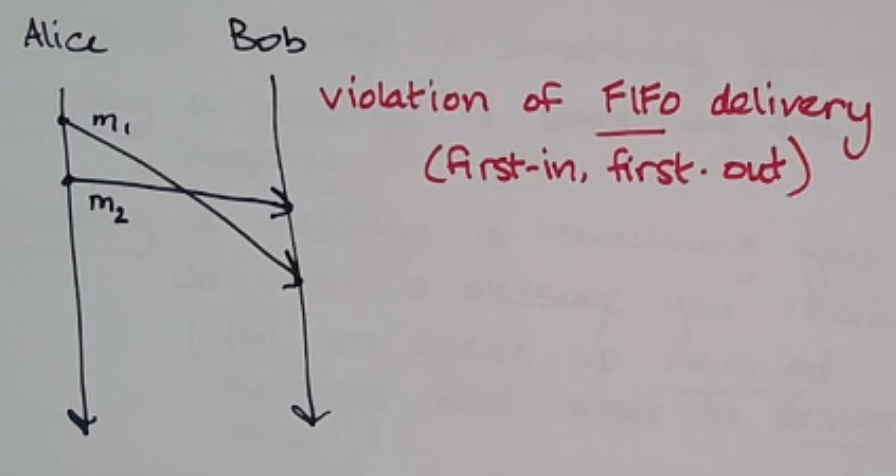 Alice Bob
violation of FIFO delivery
(first-in, first-out)
m₁
m₂